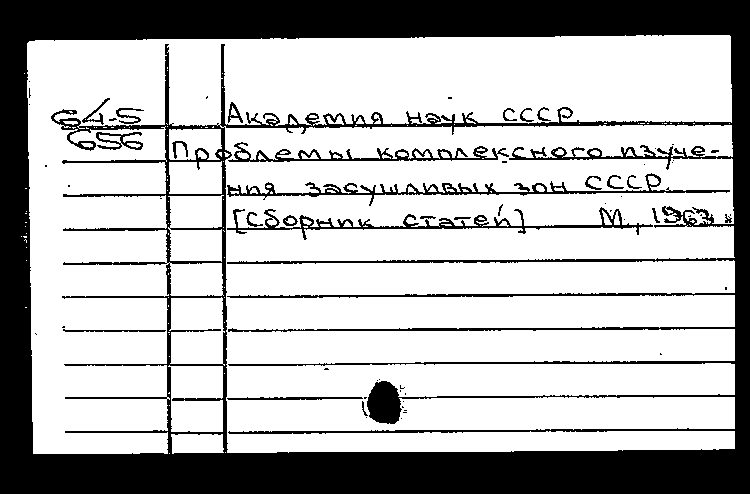 64-5
656
Академия наук СССР.
Проблемы комплексного изуче-
ния засушливых зон СССР.
[Сборник статей] М., 1963.